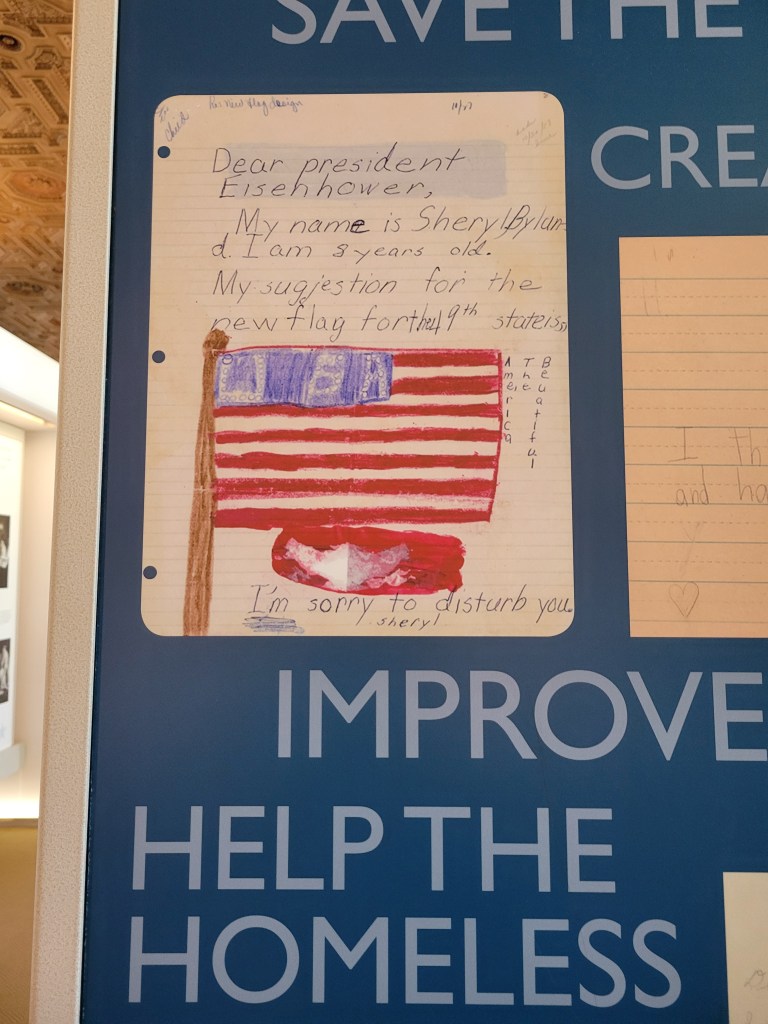 SAVE THE
CREA
His New Flag design
10/27
Dear president
Eisenhower,
My name is Sheryl Bylun
d. I am 8 years old.
My sugjestion for the
new flag for the 49th state is,
America
The
Beuatiful
I'm sorry to disturb you.
sheryl
I th
and ha
IMPROVE
HELP THE
HOMELESS